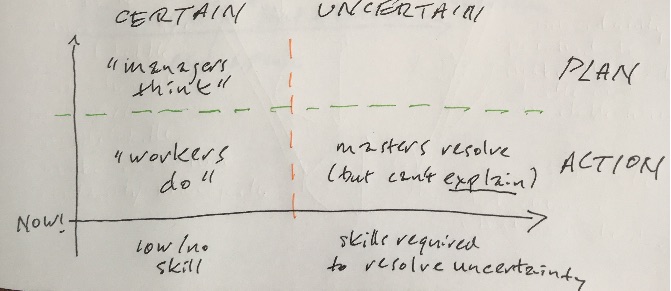 CERTAIN UNCERTAIN
"managers
think"
PLAN
"workers
do"
masters resolve
(but can't explain)
ACTION
NOW!
low/no
skill
skills required
to resolve uncertainty